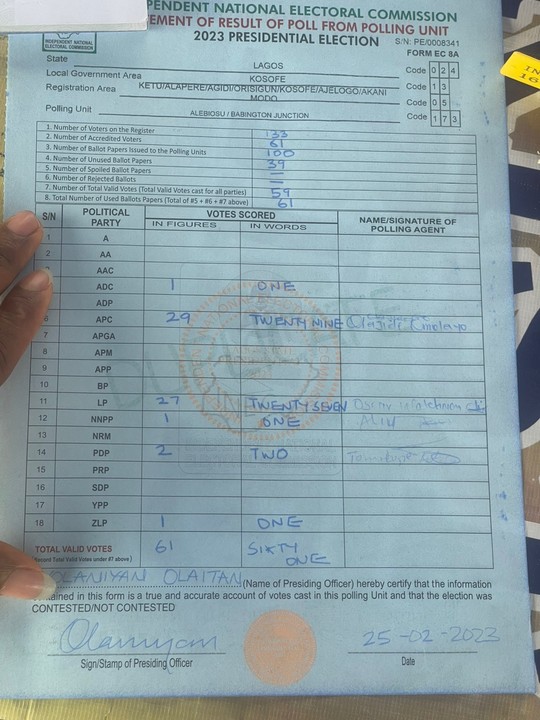 PENDENT NATIONAL ELECTORAL COMMISSION
EMENT OF RESULT OF POLL FROM POLLING UNIT
2023 PRESIDENTIAL ELECTION
S/N: PE/0008341
FORM EC 8A
INDEPENDENT NATIONAL
ELECTORAL COMMISSION
State LAGOS Code 0 2 4
Local Government Area KOSOFE Code 1 3
Registration Area KETU/ALAPERE/AGIDI/ORISIGUN/KOSOFE/AJELOGO/AKANI Code 0 5
MODO
Polling Unit ALEBIOSU / BABINGTON JUNCTION Code 1 7 3
1. Number of Voters on the Register 133
2. Number of Accredited Voters 61
3. Number of Ballot Papers Issued to the Polling Units 100
4. Number of Unused Ballot Papers 39
5. Number of Spoiled Ballot Papers —
6. Number of Rejected Ballots —
7. Number of Total Valid Votes (Total Valid Votes cast for all parties) 59
8. Total Number of Used Ballots Papers (Total of #5 + #6 + #7 above) 61
S/N POLITICAL PARTY VOTES SCORED NAME/SIGNATURE OF POLLING AGENT
IN FIGURES IN WORDS
1 A
2 AA
AAC
ADC 1 ONE
ADP
6 APC 29 TWENTY NINE
7 APGA
8 APM
9 APP
10 BP
11 LP 27 TWENTY SEVEN
12 NNPP 1 ONE
13 NRM
14 PDP 2 TWO
15 PRP
16 SDP
17 YPP
18 ZLP 1 ONE
TOTAL VALID VOTES 61 SIXTY ONE
Record Total Valid Votes under #7 above)
OLANIYAN OLAITAN (Name of Presiding Officer) hereby certify that the information
ained in this form is a true and accurate account of votes cast in this polling Unit and that the election was
CONTESTED/NOT CONTESTED
Olaniyan 25-02-2023
Sign/Stamp of Presiding Officer Date
IN
16